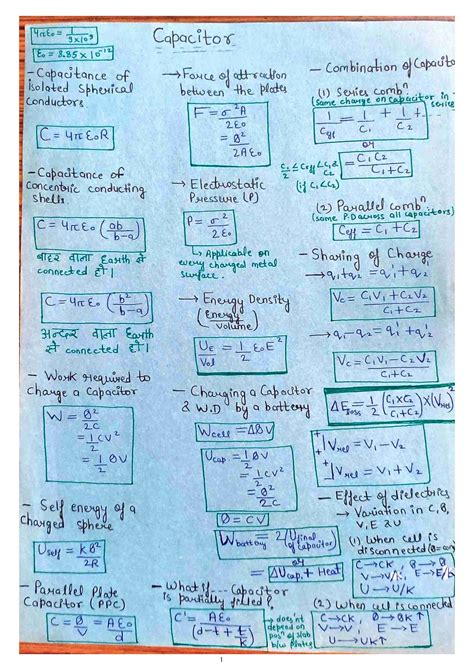 4πε₀ = 1/9×10⁹
ε₀ = 8.85 × 10⁻¹²
Capacitor
- Capacitance of
isolated spherical
conductors
C = 4πε₀R
- Capacitance of
concentric conducting
shells
C = 4πε₀ (ab/b-a)
बाहर वाला Earth से
connected हो।
C = 4πε₀ (b²/b-a)
अन्दर वाला Earth
से connected हो।
- Work required to
charge a Capacitor
W = Q²/2C
= 1/2 CV²
= 1/2 QV
- Self energy of a
charged sphere
Uself = kQ²/2R
- Parallel Plate
Capacitor (PPC)
C = Q/V = Aε₀/d
→ Force of attraction
between the plates
F = σ²A/2ε₀
= Q²/2Aε₀
→ Electrostatic
Pressure (P)
P = σ²/2ε₀
↳ Applicable on
every charged metal
surface.
→ Energy Density
(Energy/volume)
UE/Vol = 1/2 ε₀E²
- Charging a Capacitor
& W.D by a battery
Wcell = ΔQV
Ucap. = 1/2 QV
= 1/2 CV²
= Q²/2C
Q = CV
Wbattery = 2(Ufinal of capacitor)
or
= ΔUcap. + Heat
- What if --- Capacitor
is partially filled?
C' = Aε₀/(d-t+t/k)
→ does'nt
depend on
posⁿ of slab
b/w plates
- Combination of Capacito
(1) Series combⁿ
(same charge on capacitor in series
1/Ceff = 1/C₁ + 1/C₂ +
or
= C₁C₂/C₁+C₂
C₁/2 ≤ Ceff ≤ C₁ & C₂
(if C₁ ≤ C₂)
(2) Parallel combⁿ
(same P.D across all capacitors)
Ceff = C₁ + C₂
- Sharing of Charge
→ q₁+q₂ = q₁'+q₂'
Vc = C₁V₁ + C₂V₂/C₁+C₂
→ q₁-q₂ = q₁'+q₂'
Vc = C₁V₁ - C₂V₂/C₁+C₂
ΔEloss = 1/2 (C₁×C₂/C₁+C₂) × (Vrel)²
Vrel = V₁ - V₂
Vrel = V₁ + V₂
- Effect of dielectrics
→ Variation in C, Q,
V, E & U
(1) When cell is
disconnected (Q = con
C → CK, Q → Q
V → V/K, E → E/K
U → U/K
(2) When cell is connected
C → CK, Q → QK
V → V, E → E
U → UK↑
1